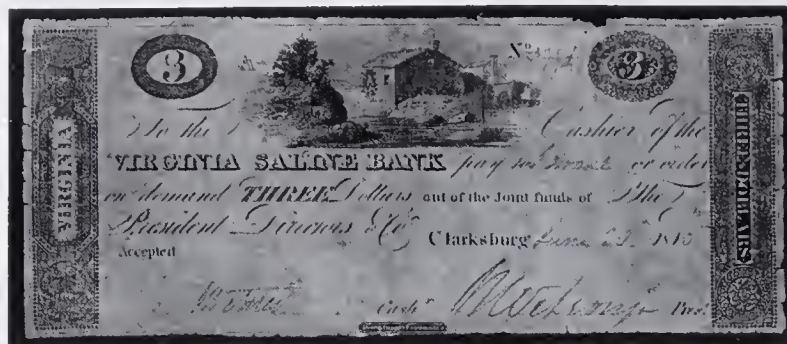 3
No
3
VIRGINIA
To the Cashier of the
VIRGINIA SALINE BANK pay to or order
on demand THREE Dollars out of the Joint funds of The
President Directors & Co Clarksburg June 1815
Accepted
Cashr Prest
THREE DOLLARS